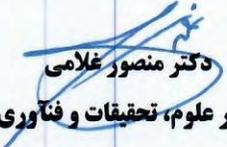 دکتر منصور غلامی
ر علوم، تحقیقات و فنآوری